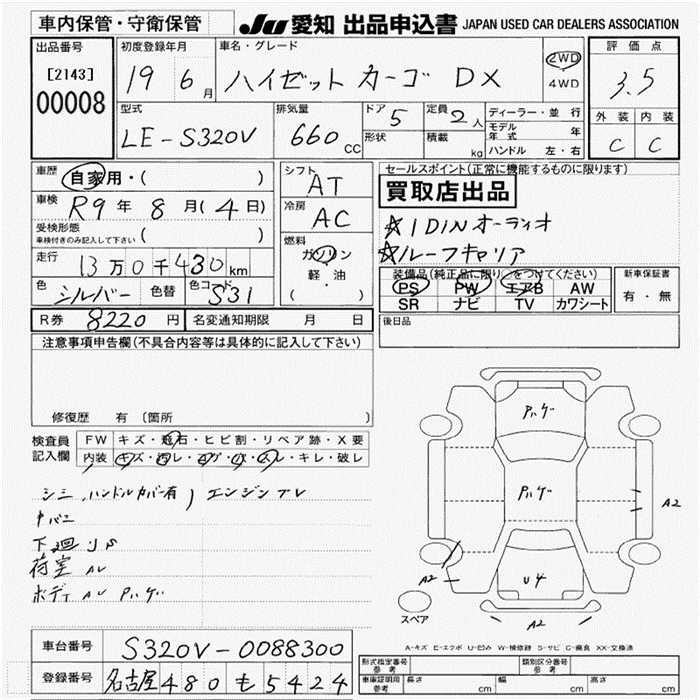 車内保管・守衛保管
JU 愛知 出品申込書 JAPAN USED CAR DEALERS ASSOCIATION
出品番号
[2143]
00008
初度登録年月
19 6月
車名・グレード
ハイゼット カーゴ DX
2WD
4WD
評価点
3.5
外装 内装
C C
型式
LE-S320V
排気量
660cc
ドア 5
形状
定員 2人
積載 kg
ディーラー・並行
モデル年式 年
ハンドル 左・右
車歴
自家用・( )
車検
R9年 8月(4日)
受検形態
車検付きのみ記入して下さい ( )
走行
13万0千430km
色 シルバー 色替 色コード S31
シフト AT
冷房 AC
燃料
ガソリン
軽・油
( )
セールスポイント(正常に機能するものに限ります)
買取店出品
☆1DINオーディオ
☆ルーフキャリア
装備品(純正品に限り○をつけてください)
PS PW エアB AW
SR ナビ TV カワシート
新車保証書
有・無
R券 8220円 名変通知期限 月 日
後日品
注意事項申告欄(不具合内容等は具体的に記入して下さい)
修復歴 有 〔箇所
検査員記入欄
FW キズ・飛石・ヒビ割・リペア跡・X要
内装 キズ・汚レ・コゲ・穴・スレ・キレ・破レ
シミ、ハンドルカバー有 エンジンブレ
タバコ
下廻りS
荷室 AU
ボディ AU
A2
A2
A2
スペア
A-キズ E-エクボ U-凹み W-補修跡 S-サビ C-腐食 XX-交換済
車台番号 S320V-0088300
登録番号 名古屋 480 も 5424
形式指定番号 参考
類別区分番号 参考
車庫証明用 参考 長さ cm 幅 cm 高さ cm